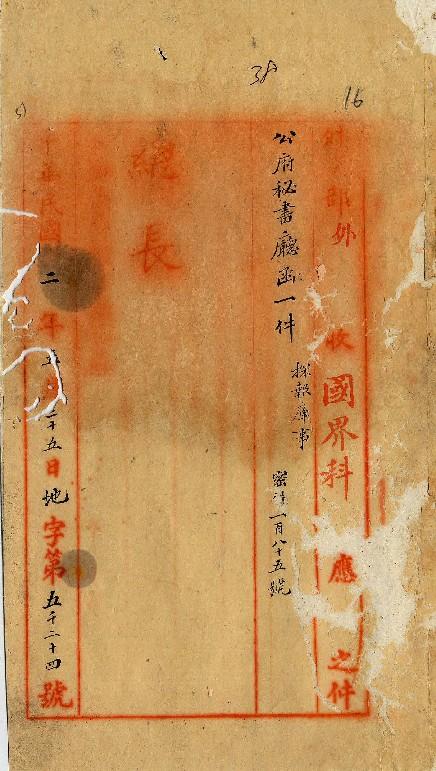 38
16
外 部 外 收 國界科 應 之件
公府秘書廳函一件 探報庫事 密 一百八十五號
總長
中華民國二年五月二十五日地字第五千二十四號